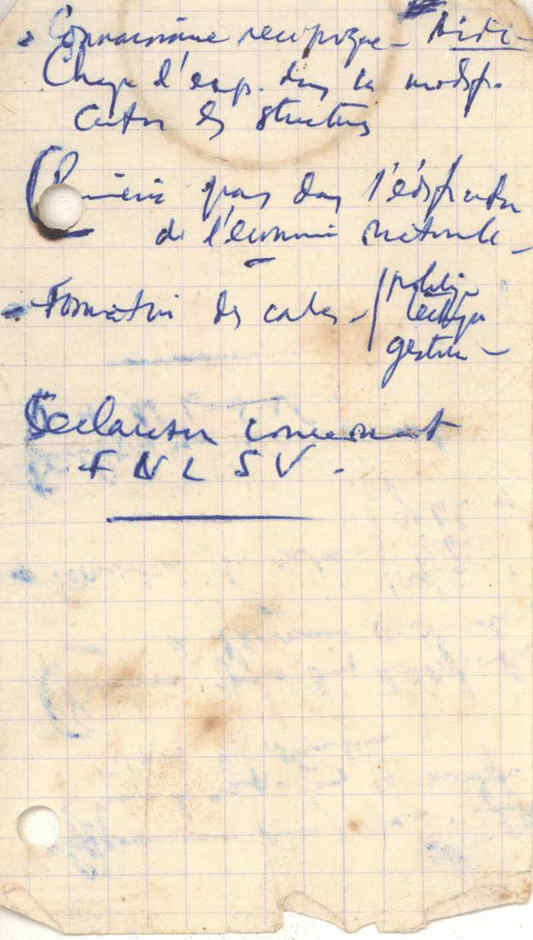 Connaissance réciproque -
Chage d'exp. dans la modifi-
cation des structures
dans l'édification
de l'économie nationale -
- Formation des cadres - politique
technique
gestion -
Déclaration concernant
F N L S V -